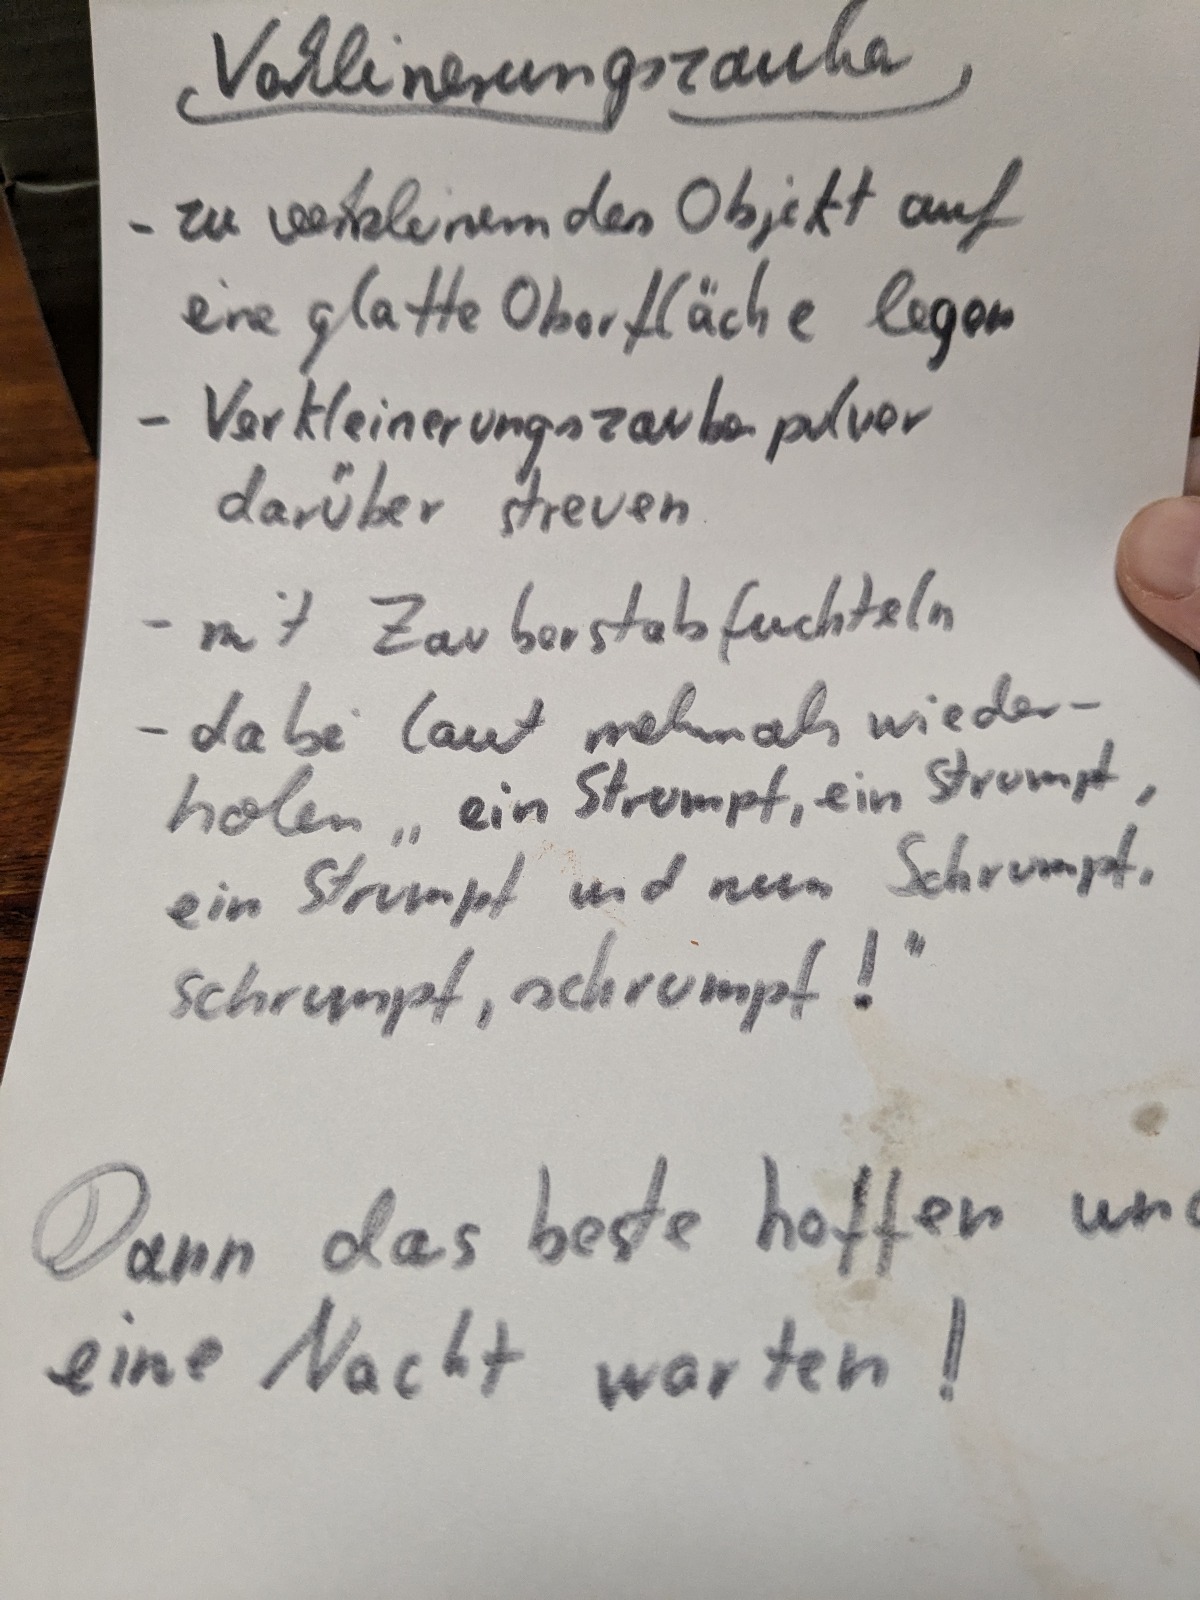 Verkleinerungszauber
- zu verkleinerndes Objekt auf
eine glatte Oberfläche legen
- Verkleinerungszauberpulver
darüber streuen
- mit Zauberstab fuchteln
- dabei laut mehrmals wieder-
holen „ein Strumpf, ein Strumpf,
ein Strumpf und nun Schrumpf,
schrumpf, schrumpf!"
Dann das beste hoffen und
eine Nacht warten!